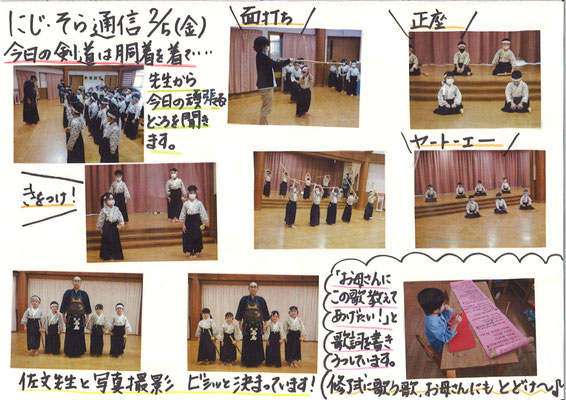 にじ・そら通信 2/5(金)
今日の剣道は胴着を着て‥‥
先生から
今日の頑張る
ところを聞き
ます。
面打ち
正座
ヤートーエー
きをつけ!
佐文先生と写真撮影
ビシッと決まっています!
「お母さんに
この歌教えて
あげたい!」と
歌詞を書き
うつしています。
修了式に歌う歌、お母さんにもとどけ〜♪